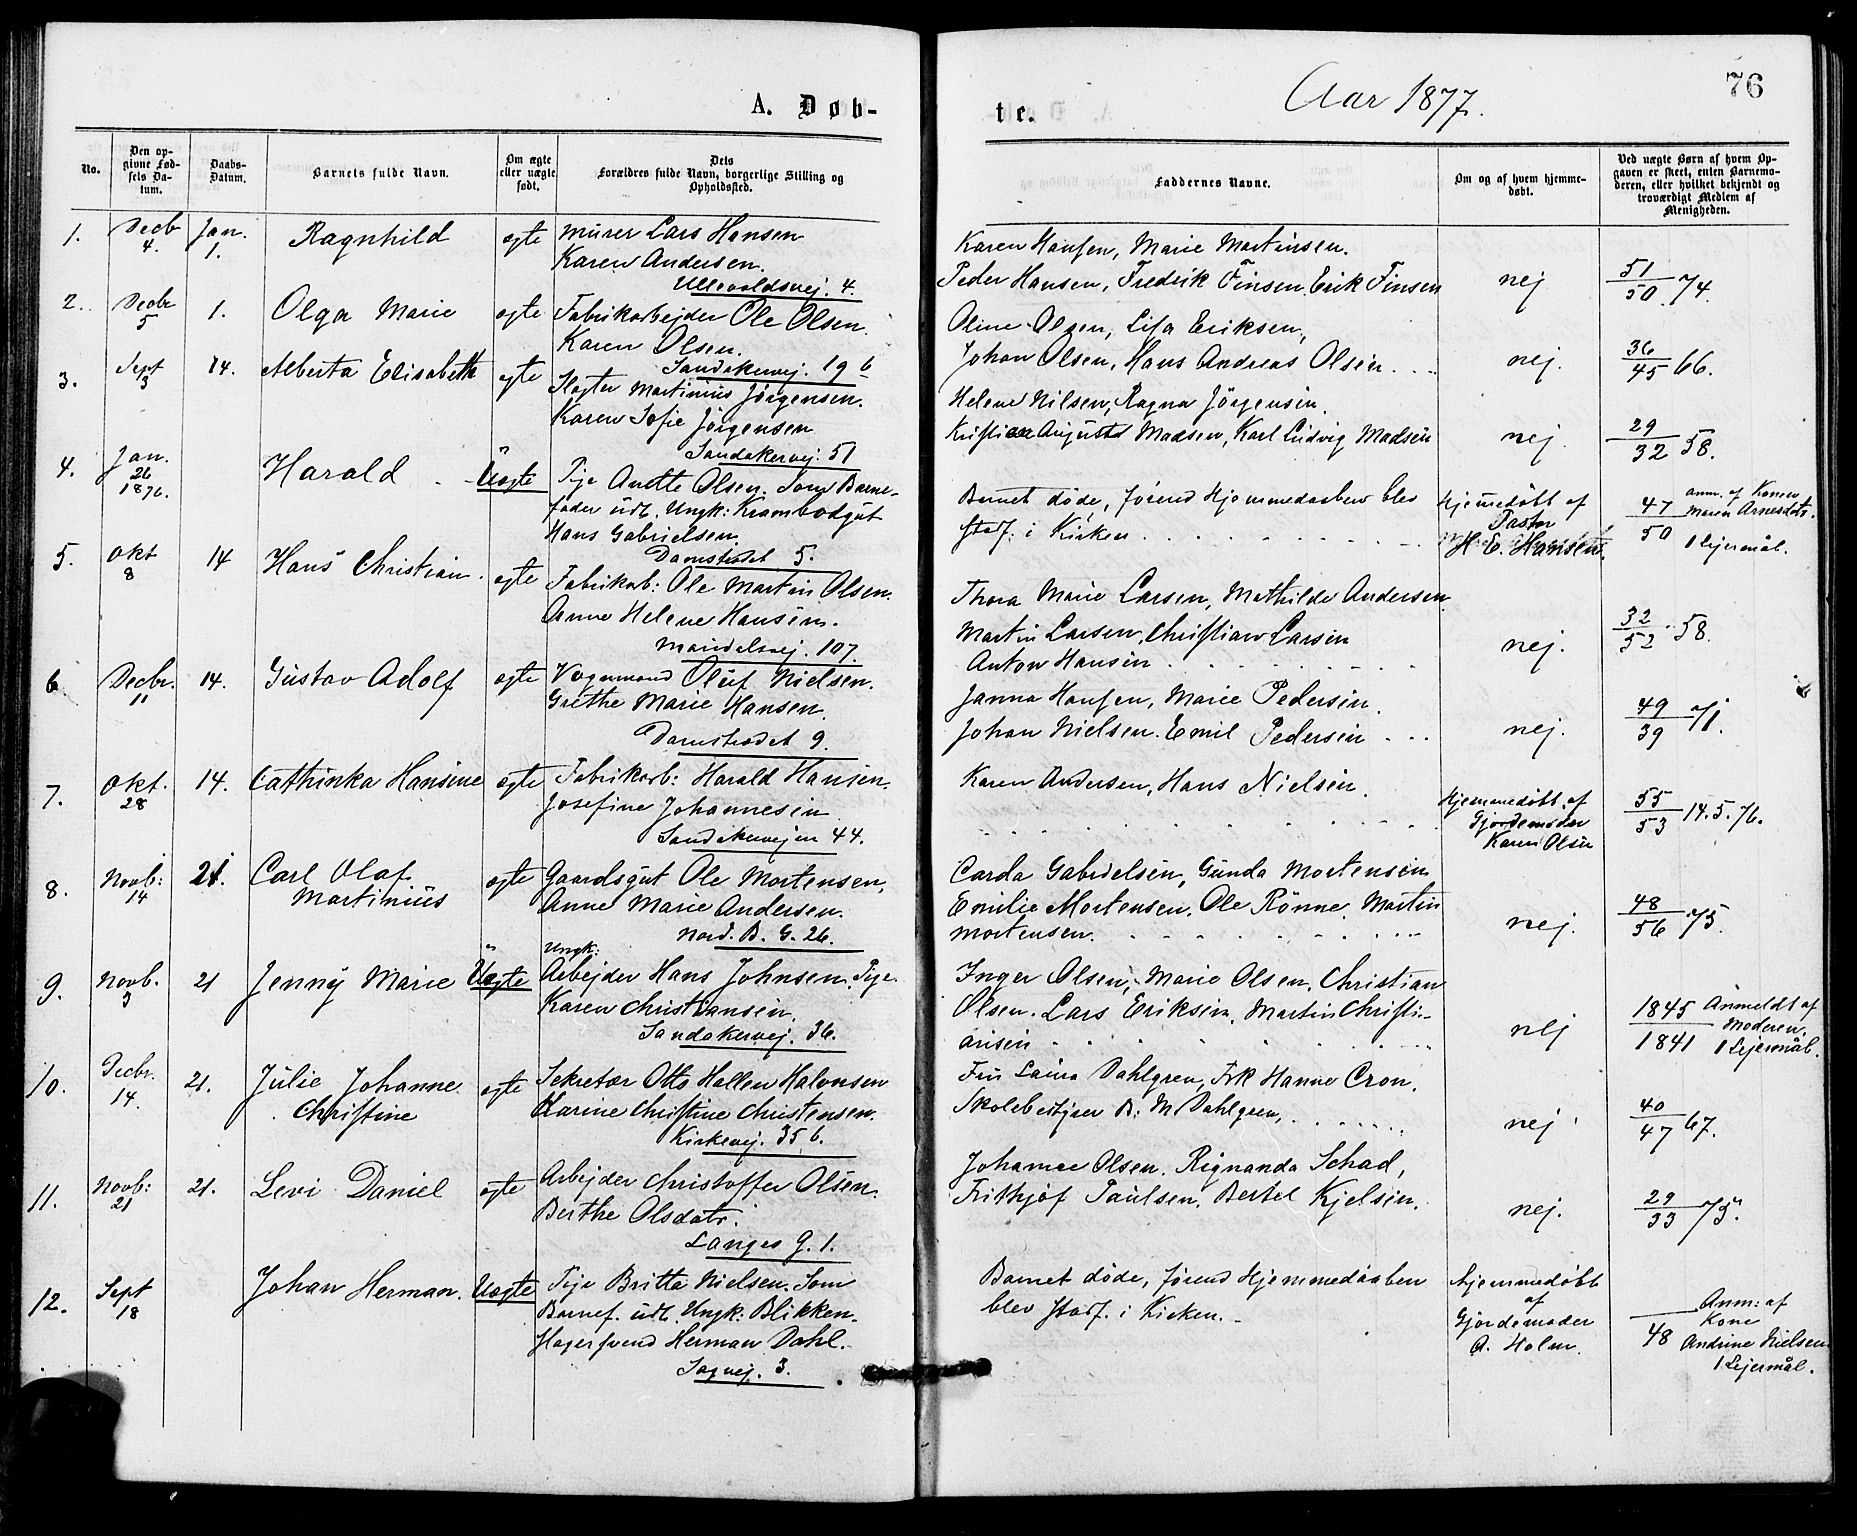 76
A. Døb-
te.
Aar 1877.
No.
Den op-
givne Fød-
sels Da-
tum.
Daabs-
Datum.
Barnets fulde Navn.
Om ægte
eller uægte
født.
Dets
Forældres fulde Navn, borgerlige Stilling og
Opholdssted.
Faddernes Navne.
Om og af hvem hjemme-
døbt.
Ved uægte Børn af hvem Op-
gaven er skeet, enten Barnemo-
deren, eller hvilket bekjendt og
troværdigt Medlem af
Menigheden.
1.
Decbr
4.
Jan.
1.
Ragnhild
ægte
Murer Lars Hansen
Karen Andersen.
Ullevoldsvej. 4.
Karen Hansen, Marie Martinsen.
Peder Hansen, Fredrik Finsen, Erik Finsen
nej
51
50. 74.
2.
Decbr
5
1.
Olga Marie
ægte
Fabrikarbejder Ole Olsen.
Karen Olsen.
Sandakervej. 19 b
Oline Olsen, Lisa Eriksen,
Johan Olsen, Hans Andreas Olsen . . .
nej.
36
45 66.
3.
Sept
3
14.
Alberta Elisabeth
ægte
Slagter Martinius Jörgensen.
Karen Sofie Jörgensen
Sandakervej. 51
Helene Nilsen, Ragna Jörgensen.
Kristian August Madsen, Karl Ludvig Madsen
nej.
29
32 58.
4.
Jan.
26
1876.
Harald
Uægte
Pige Anette Olsen, Som Barne-
fader udl. Ungk: Krambodgut
Hans Gabrielsen.
Damstrædet 5.
Barnet døde, førend Hjemmedaaben blev
stadf. i Kirken
Hjemmedöbt af
Pastor
H. E. Hansen.
47
50
anm. af Konen
Maren Arnesdatr.
1 Lejermål.
5.
Okt
8
14
Hans Christian
ægte
Fabrikarb: Ole Martin Olsen.
Anne Helene Hansen.
Maridalsvej. 107.
Thora Marie Larsen, Mathilde Andersen
Martin Larsen, Christian Larsen
Anton Hansen
nej.
32
52. 58.
6
Decbr.
11
14.
Gustav Adolf
ægte
Vognmand Oluf Nielsen.
Grethe Marie Hansen.
Damstrædet 9.
Janna Hansen, Marie Pedersen.
Johan Nielsen. Emil Pedersen . . .
nej.
49
39 71.
7.
Okt.
28
14.
Cathinka Hansine
ægte
Fabrikarb: Harald Hansen.
Josefine Johannesen
Sandakervejen 44.
Karen Andersen, Hans Nielsen.
Hjemmedöbt af
Gjordemoder
Karen Olsen
55
53 14.5.76.
8.
Novb:
14
21.
Carl Olaf
Martinius
ægte
Gaardsgut Ole Mortensen,
Anne Marie Andersen.
Nord. B. G. 26.
Carda Gabrielsen, Gunda Mortensen
Emilie Mortensen, Ole Rönne, Martin
Mortensen.
nej.
48
56 75.
9.
Novb.
3
21
Jenny Marie
Uægte
Ungk:
Arbejder Hans Johnsen, Pige
Karen Christiansen.
Sandakervej. 36.
Inger Olsen, Marie Olsen, Christian
Olsen. Lars Eriksen, Martin Christi-
ansen
nej
1845
1841
Anmeldt af
Moderen.
1 Lejermål.
10.
Decbr.
14.
21.
Julie Johanne
Christine
ægte
Sekretær Otto Hallen Halvorsen
Karine Christine Christensen.
Kirkevej. 35 b.
Fru Laura Dahlgren, Frk Hanne Cron,
Skolebestyrer B: M. Dahlgren,
nej
40
47 67.
11.
Novb:
21
21.
Levi Daniel
ægte
Arbejder Christoffer Olsen.
Berthe Olsdatr.
Langes G. 1.
Johanne Olsen. Rignanda Schad,
Frithjof Paulsen, Bertel Kjelsen.
nej.
29
33 75.
12.
Sept
18
Johan Herman.
Uægte
Pige Britta Nielsen. Som
Barnef. udl. Ungk: Blikken-
slagersvend Herman Dahl.
Sagvej. 3.
Barnet døde, førend Hjemmedaaben
blev stadf. i Kirken.
Hjemmedöbt
af
Gjordemoder
A. Holm.
48
Anm: af
Kone
Andrine Nielsen
1 Lejermål.